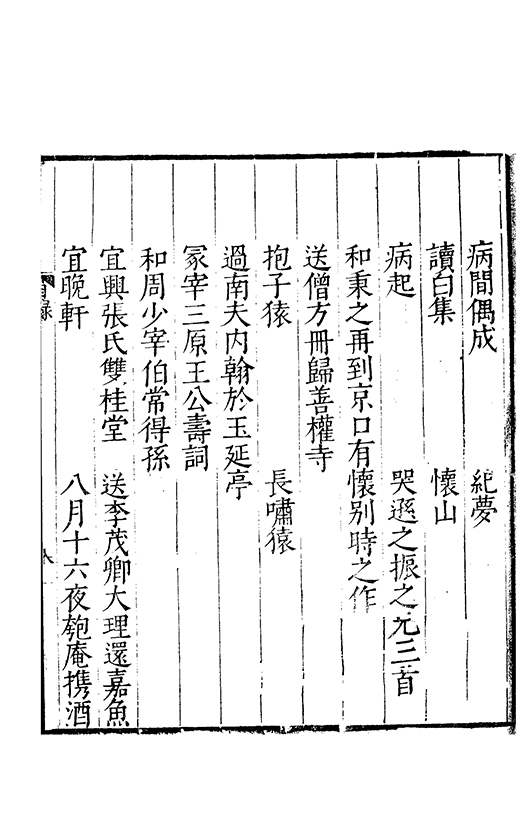 病間偶成　紀夢
讀白集　懷山
病起　哭遜之振之九三首
和秉之再到京口有懷别時之作
送僧方冊歸善權寺
抱子猿　長嘯猿
過南夫内翰於玉延亭
冢宰三原王公壽詞
和周少宰伯常得孫
宜興張氏雙桂堂　送李茂卿大理還嘉魚
宜晚軒　八月十六夜匏庵携酒
目録　八